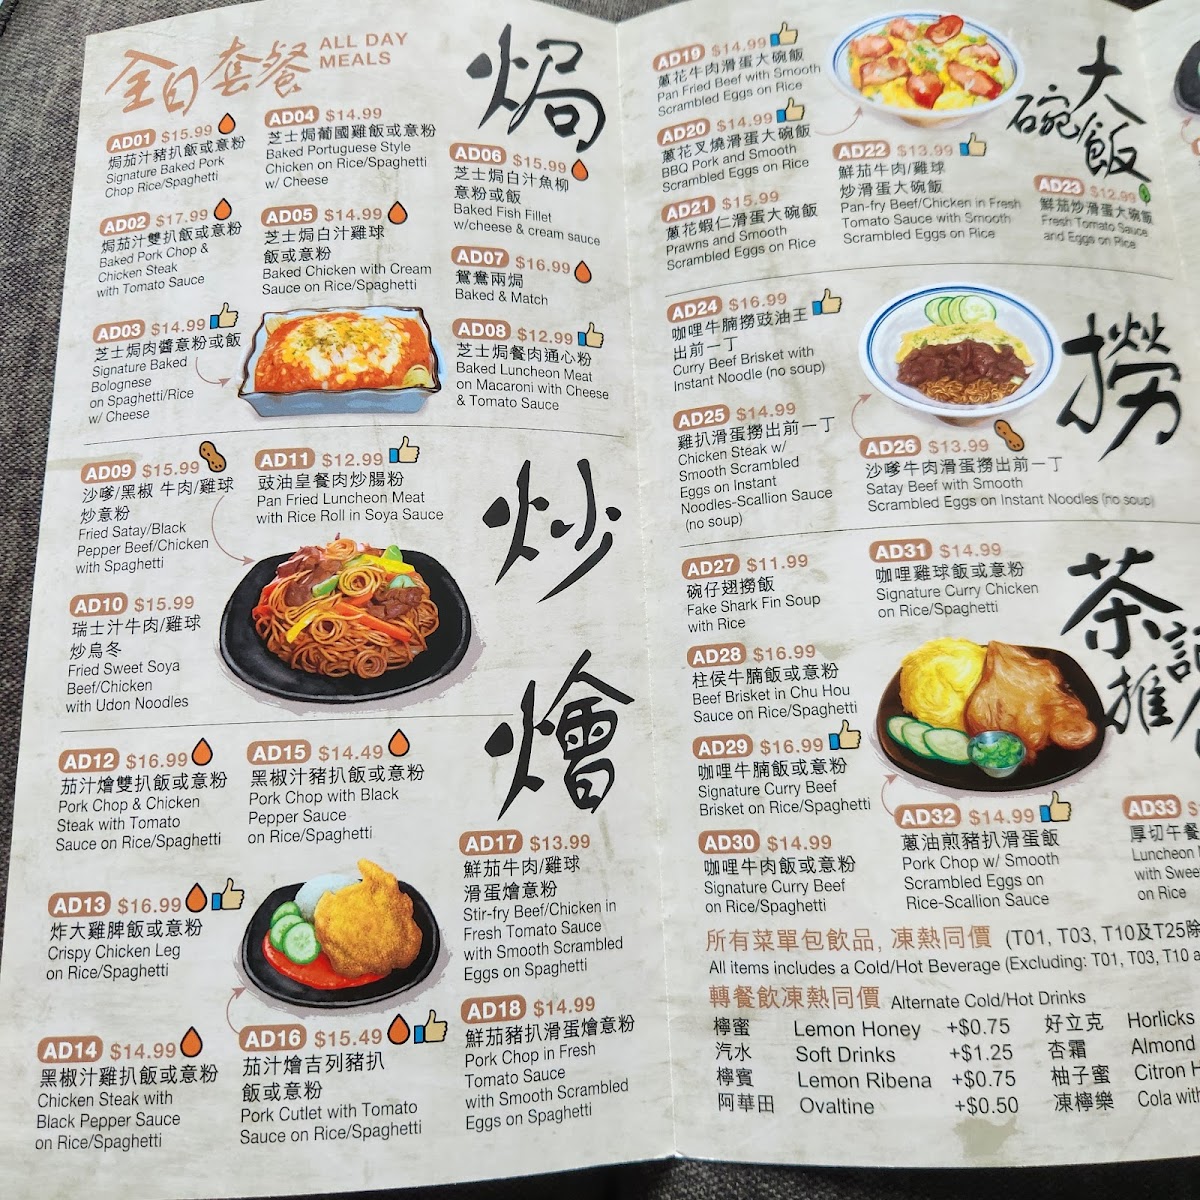 全日套餐 ALL DAY
MEALS
焗
AD01 $15.99
焗茄汁豬扒飯或意粉
Signature Baked Pork
Chop Rice/Spaghetti
AD02 $17.99
焗茄汁雙扒飯或意粉
Baked Pork Chop &
Chicken Steak
with Tomato Sauce
AD03 $14.99
芝士焗肉醬意粉或飯
Signature Baked
Bolognese
on Spaghetti/Rice
w/ Cheese
AD04 $14.99
芝士焗葡國雞飯或意粉
Baked Portuguese Style
Chicken on Rice/Spaghetti
w/ Cheese
AD05 $14.99
芝士焗白汁雞球
飯或意粉
Baked Chicken with Cream
Sauce on Rice/Spaghetti
AD06 $15.99
芝士焗白汁魚柳
意粉或飯
Baked Fish Fillet
w/cheese & cream sauce
AD07 $16.99
鴛鴦兩焗
Baked & Match
AD08 $12.99
芝士焗餐肉通心粉
Baked Luncheon Meat
on Macaroni with Cheese
& Tomato Sauce
炒
AD09 $15.99
沙嗲/黑椒 牛肉/雞球
炒意粉
Fried Satay/Black
Pepper Beef/Chicken
with Spaghetti
AD10 $15.99
瑞士汁牛肉/雞球
炒烏冬
Fried Sweet Soya
Beef/Chicken
with Udon Noodles
AD11 $12.99
豉油皇餐肉炒腸粉
Pan Fried Luncheon Meat
with Rice Roll in Soya Sauce
燴
AD12 $16.99
茄汁燴雙扒飯或意粉
Pork Chop & Chicken
Steak with Tomato
Sauce on Rice/Spaghetti
AD13 $16.99
炸大雞脾飯或意粉
Crispy Chicken Leg
on Rice/Spaghetti
AD14 $14.99
黑椒汁雞扒飯或意粉
Chicken Steak with
Black Pepper Sauce
on Rice/Spaghetti
AD15 $14.49
黑椒汁豬扒飯或意粉
Pork Chop with Black
Pepper Sauce
on Rice/Spaghetti
AD16 $15.49
茄汁燴吉列豬扒
飯或意粉
Pork Cutlet with Tomato
Sauce on Rice/Spaghetti
AD17 $13.99
鮮茄牛肉/雞球
滑蛋燴意粉
Stir-fry Beef/Chicken in
Fresh Tomato Sauce
with Smooth Scrambled
Eggs on Spaghetti
AD18 $14.99
鮮茄豬扒滑蛋燴意粉
Pork Chop in Fresh
Tomato Sauce
with Smooth Scrambled
Eggs on Spaghetti
大碗飯
AD19 $14.99
蔥花牛肉滑蛋大碗飯
Pan Fried Beef with Smooth
Scrambled Eggs on Rice
AD20 $14.99
蔥花叉燒滑蛋大碗飯
BBQ Pork and Smooth
Scrambled Eggs on Rice
AD21 $15.99
蔥花蝦仁滑蛋大碗飯
Prawns and Smooth
Scrambled Eggs on Rice
AD22 $13.99
鮮茄牛肉/雞球
炒滑蛋大碗飯
Pan-fry Beef/Chicken in Fresh
Tomato Sauce with Smooth
Scrambled Eggs on Rice
AD23 $12.99
鮮茄炒滑蛋大碗飯
Fresh Tomato Sauce
and Eggs on Rice
撈
AD24 $16.99
咖哩牛腩撈豉油王
出前一丁
Curry Beef Brisket with
Instant Noodle (no soup)
AD25 $14.99
雞扒滑蛋撈出前一丁
Chicken Steak w/
Smooth Scrambled
Eggs on Instant
Noodles-Scallion Sauce
(no soup)
AD26 $13.99
沙嗲牛肉滑蛋撈出前一丁
Satay Beef with Smooth
Scrambled Eggs on Instant Noodles (no soup)
茶
推
AD27 $11.99
碗仔翅撈飯
Fake Shark Fin Soup
with Rice
AD28 $16.99
柱侯牛腩飯或意粉
Beef Brisket in Chu Hou
Sauce on Rice/Spaghetti
AD29 $16.99
咖哩牛腩飯或意粉
Signature Curry Beef
Brisket on Rice/Spaghetti
AD30 $14.99
咖哩牛肉飯或意粉
Signature Curry Beef
on Rice/Spaghetti
AD31 $14.99
咖哩雞球飯或意粉
Signature Curry Chicken
on Rice/Spaghetti
AD32 $14.99
蔥油煎豬扒滑蛋飯
Pork Chop w/ Smooth
Scrambled Eggs on
Rice-Scallion Sauce
AD33 $
厚切午餐
Luncheon
with Swee
on Rice
所有菜單包飲品, 凍熱同價 (T01, T03, T10及T25除
All items includes a Cold/Hot Beverage (Excluding: T01, T03, T10 a
轉餐飲凍熱同價 Alternate Cold/Hot Drinks
檸蜜 Lemon Honey +$0.75 好立克 Horlicks
汽水 Soft Drinks +$1.25 杏霜 Almond
檸賓 Lemon Ribena +$0.75 柚子蜜 Citron H
阿華田 Ovaltine +$0.50 凍檸樂 Cola with